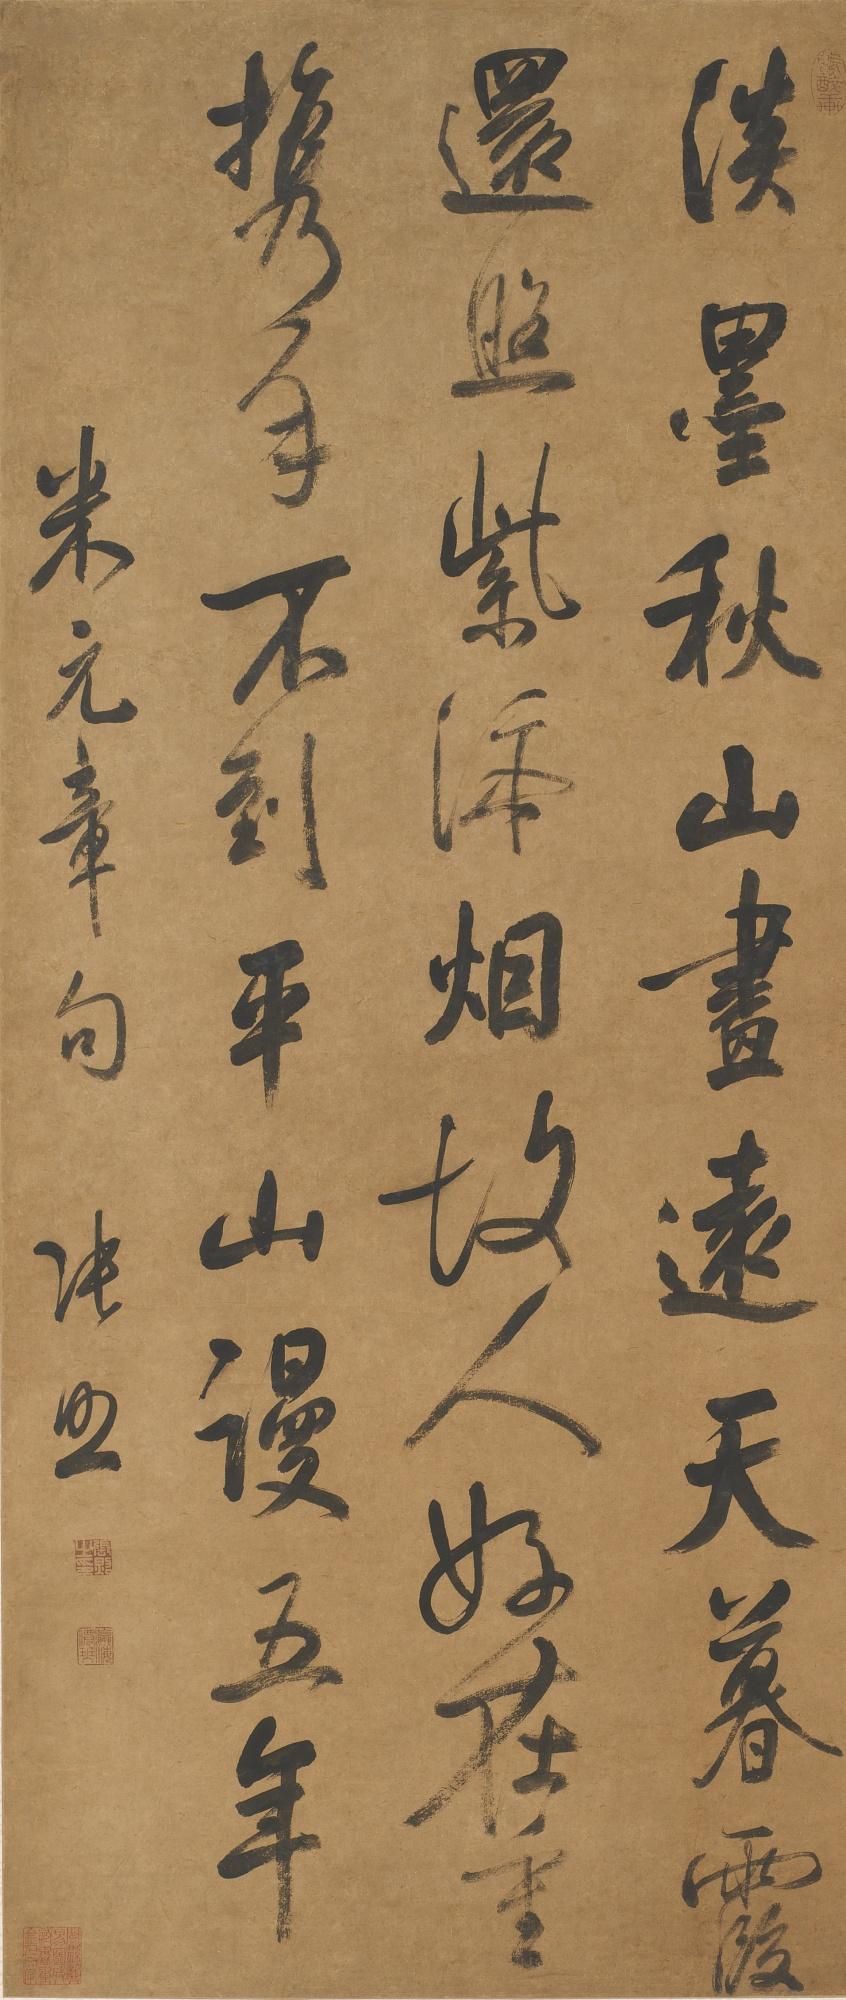 淡墨秋山畫遠天暮霞
還照紫添烟故人好在重
携手不到平山謾五年
米元章句 張照